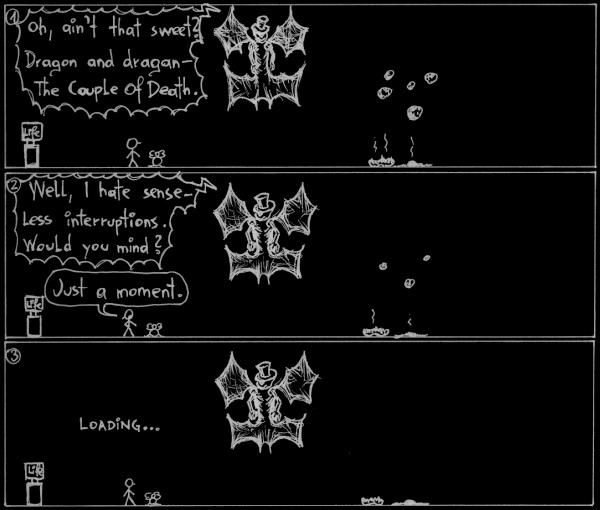 1
Oh, ain't that sweet?
Dragon and dragan-
The Couple Of Death.
Life
2
Well, I hate sense-
Less interruptions.
Would you mind?
Just a moment.
Life
3
LOADING...
Life